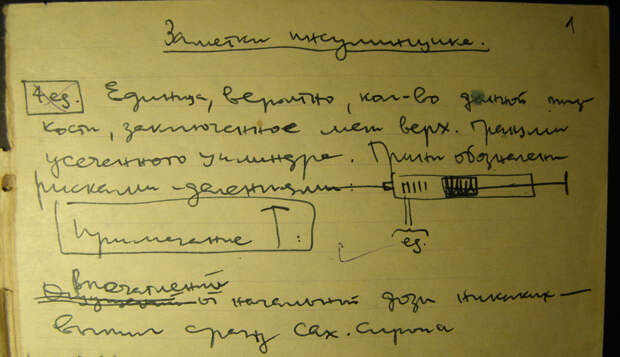 1
Заметки инсулинщика.
4 ед. Единица, вероятно, кол-во данной жид
кости, заключенное меж верх. гранями
усеченного цилиндра. Грани обозначены
рисками-делениями:
ед.
Примечание 1:
впечатлений
от начальной дозы никаких —
выпил сразу сах. сиропа